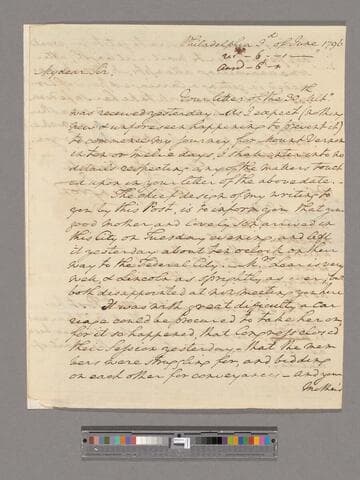 Philadelphia 3d of June 1796
recd - 6 -
Ansd - 6
My dear Sir,
Your letter of the 30th Ulto
was received yesterday. As I expect (nothing
new & unforeseen happening to prevent it)
to commence my journey for Mount Vernon
in ten or twelve days, I shall enter into no
details respecting any of the matters touch
ed upon in your letter of the above date.
The chief design of my writing to
you by this Post, is to inform you that your
good mother and lovely Son arrived in
this City on Tuesday evening, and left
it yesterday about ten oclock on their
way to the Federal City. Mrs. Lear is very
well, & Lincoln as sprightly as ever, but
both disappointed at not meeting you here.
It was with great difficulty a Car
riage could be procured to take her on,
for it so happened that Congress closed
their Session yesterday, that the mem
bers were struggling for, and bidding
on each other for conveyances - And your
Mother's